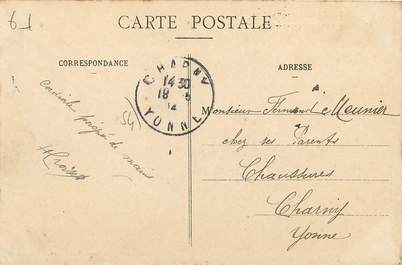 CARTE POSTALE
CORRESPONDANCE
ADRESSE
CHARNY
14 30
18 5
12
YONNE
Cordiale poignée de mains
Monsieur Fernand Meunier
chez ses Parents
Chaussures
Charny
Yonne